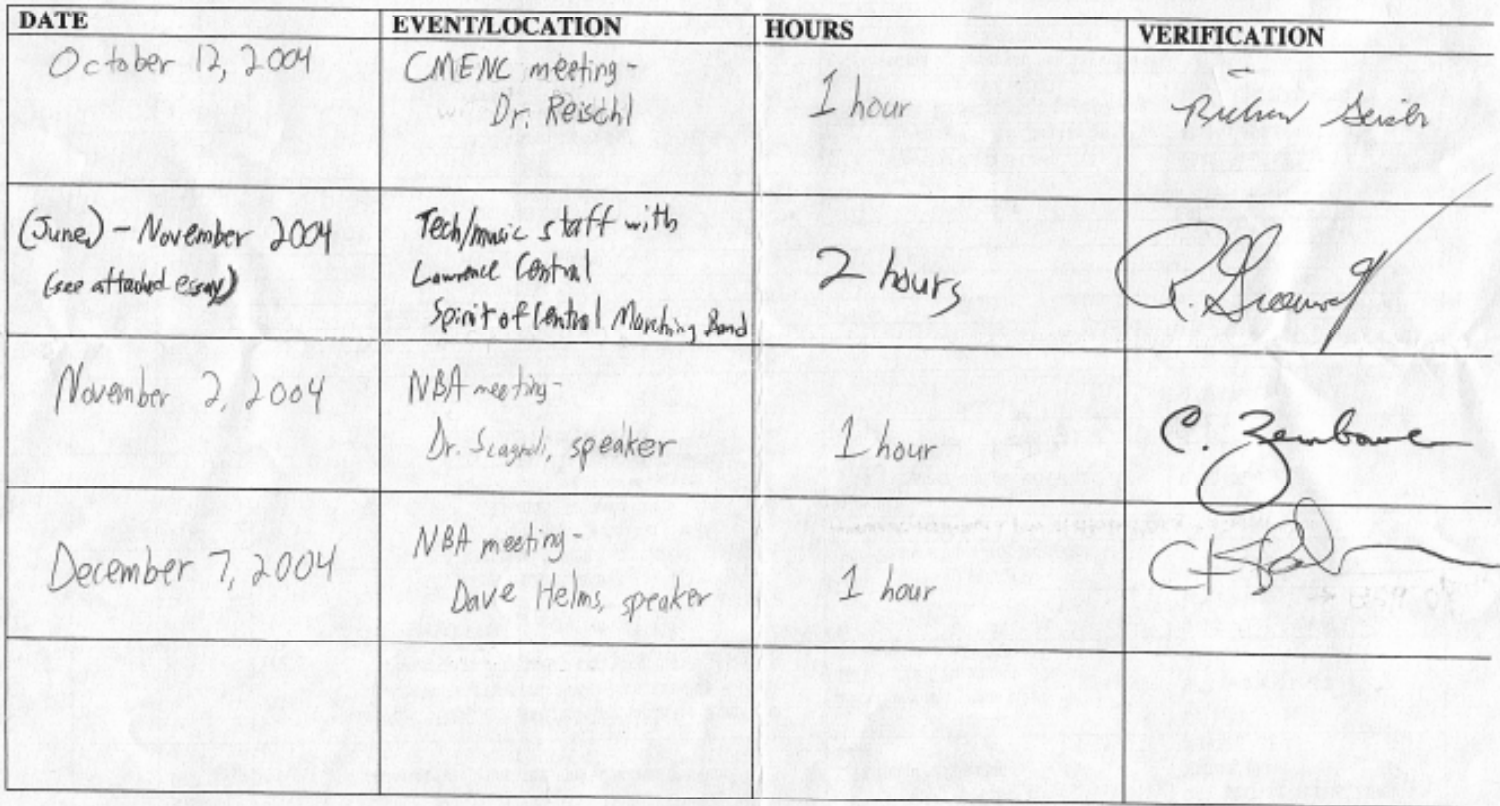 DATE EVENT/LOCATION HOURS VERIFICATION
October 12, 2004
CMENC meeting -
Dr. Reischl
1 hour
(June) - November 2004
(see attached essay)
Tech/music staff with
Lawrence Central
Spirit of Central Marching Band
2 hours
November 2, 2004
NBA meeting -
Dr. speaker
1 hour
C.
December 7, 2004
NBA meeting -
Dave Helms, speaker
1 hour